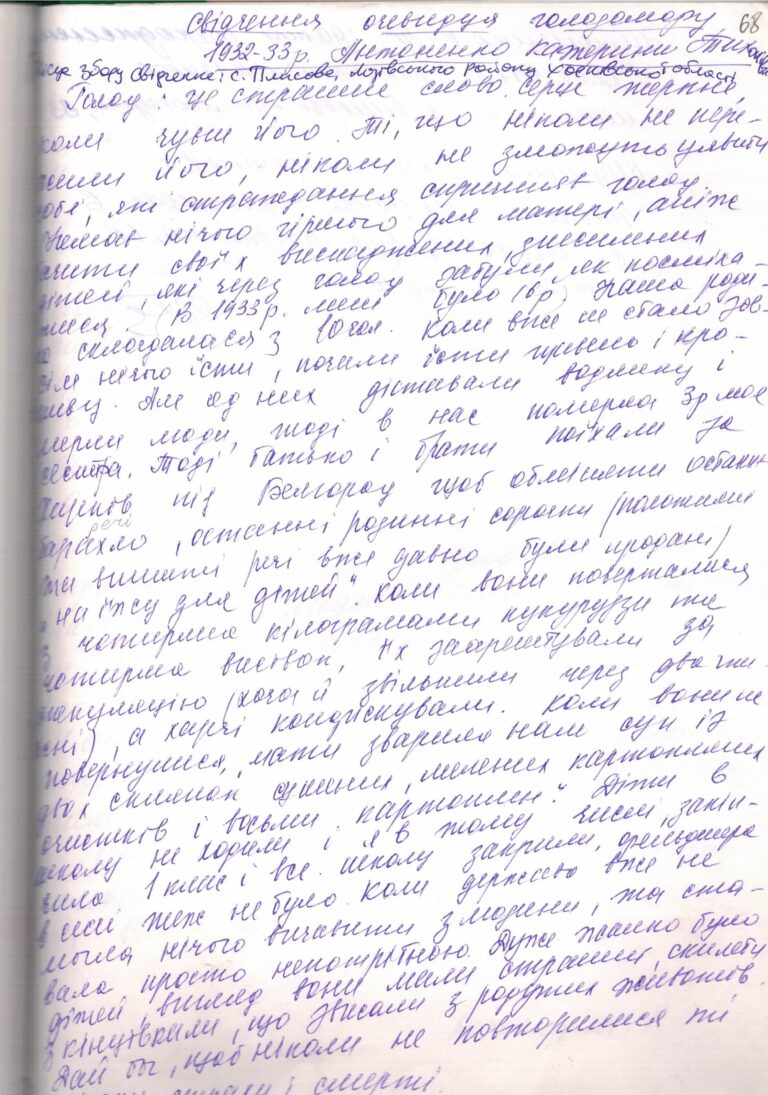 68
Свідчення очевидця голодомору
1932-33р. Антоненко Катерини Тихонівни
Місце збору свідчення: с. Плисове, Лозівського району Харківської області
Голод! Це страшне слово. Серце жеркне,
коли чуєш його. Ті, що ніколи не пере-
жили його, ніколи не зможуть уявити
собі, які страждання спричиняв голод
Немає нічого гіршого для матері, аніж
бачити своїх виснажених, знесилених
дітей, які через голод забули, як посміха-
тися (В 1933р. мені було 16р). Наша роди-
на складалася з 10 чол. Коли вже не стало зов-
сім нічого їсти, почали їсти щавель і кро-
пиву. Але од них діставали водянку і
мерли люди, тоді в нас померла 3р моя
сестра. Тоді батько і брати поїхали за
Харків під Белгород щоб обміняти останнє
барахло, речі останні родинні сорочки (положили
та вишиті речі вже давно були продані)
"на їжу для дітей". Коли вони поверталися
з чотирма кілограмами кукурудзи та
чотирма висівок, їх заарештували за
спекуляцію (хоча й звільнили через два ти-
жні), а харчі конфіскували. Коли вони не
повернулися, мати зварила нам суп із
двох склянок сушених, мелених картопляних
очистків і восьми картоплин." Діти в
школу не ходили і я в тому числі, закін-
чила 1 клас і все. Школу закрили, фельдшера
в селі теж не було. Коли держава вже не
могла нічого вичавити з людини, та ста-
вала просто непотрібною. Дуже жалко було
дітей, вигляд вони мали страшний, скелети
з кінцівками, що звисали з роздутих животів.
Дай бо, щоб ніколи не повторилися ті
страхи і смерті.